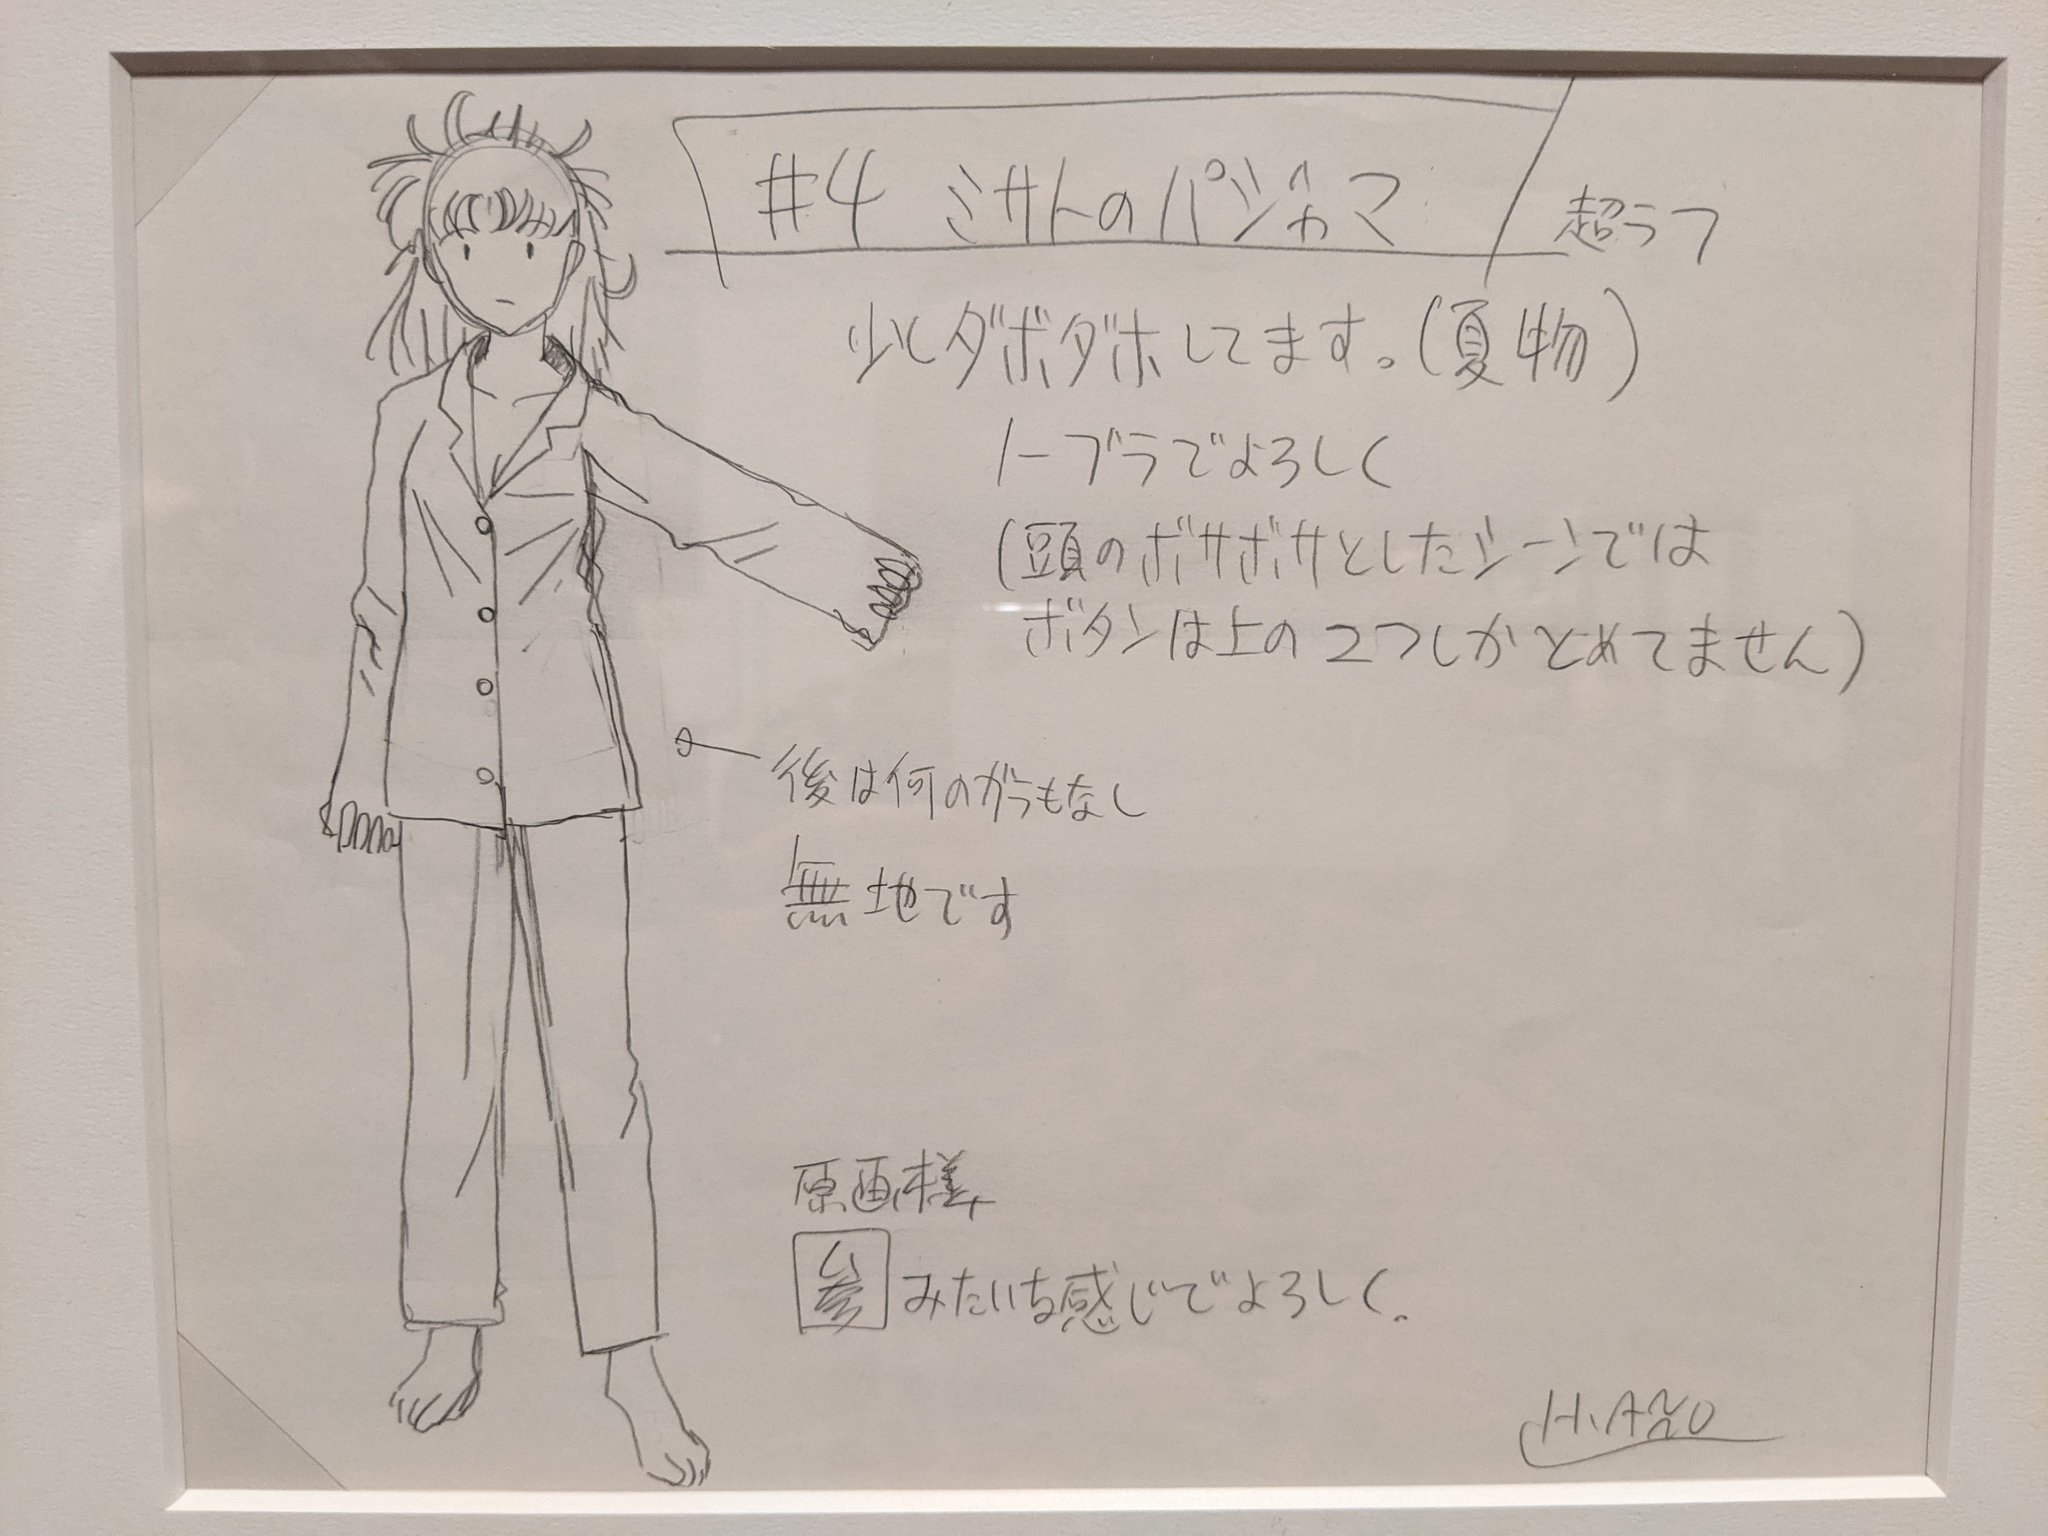 #4 ミサトのパジャマ
超ラフ
少しダボダボしてます。(夏物)
ノーブラでよろしく
(頭のボサボサとしたシーンでは
ボタンは上の2つしかとめてません)
後は何のガラもなし
無地です
原画様
参 みたいな感じでよろしく.
H.ANNO